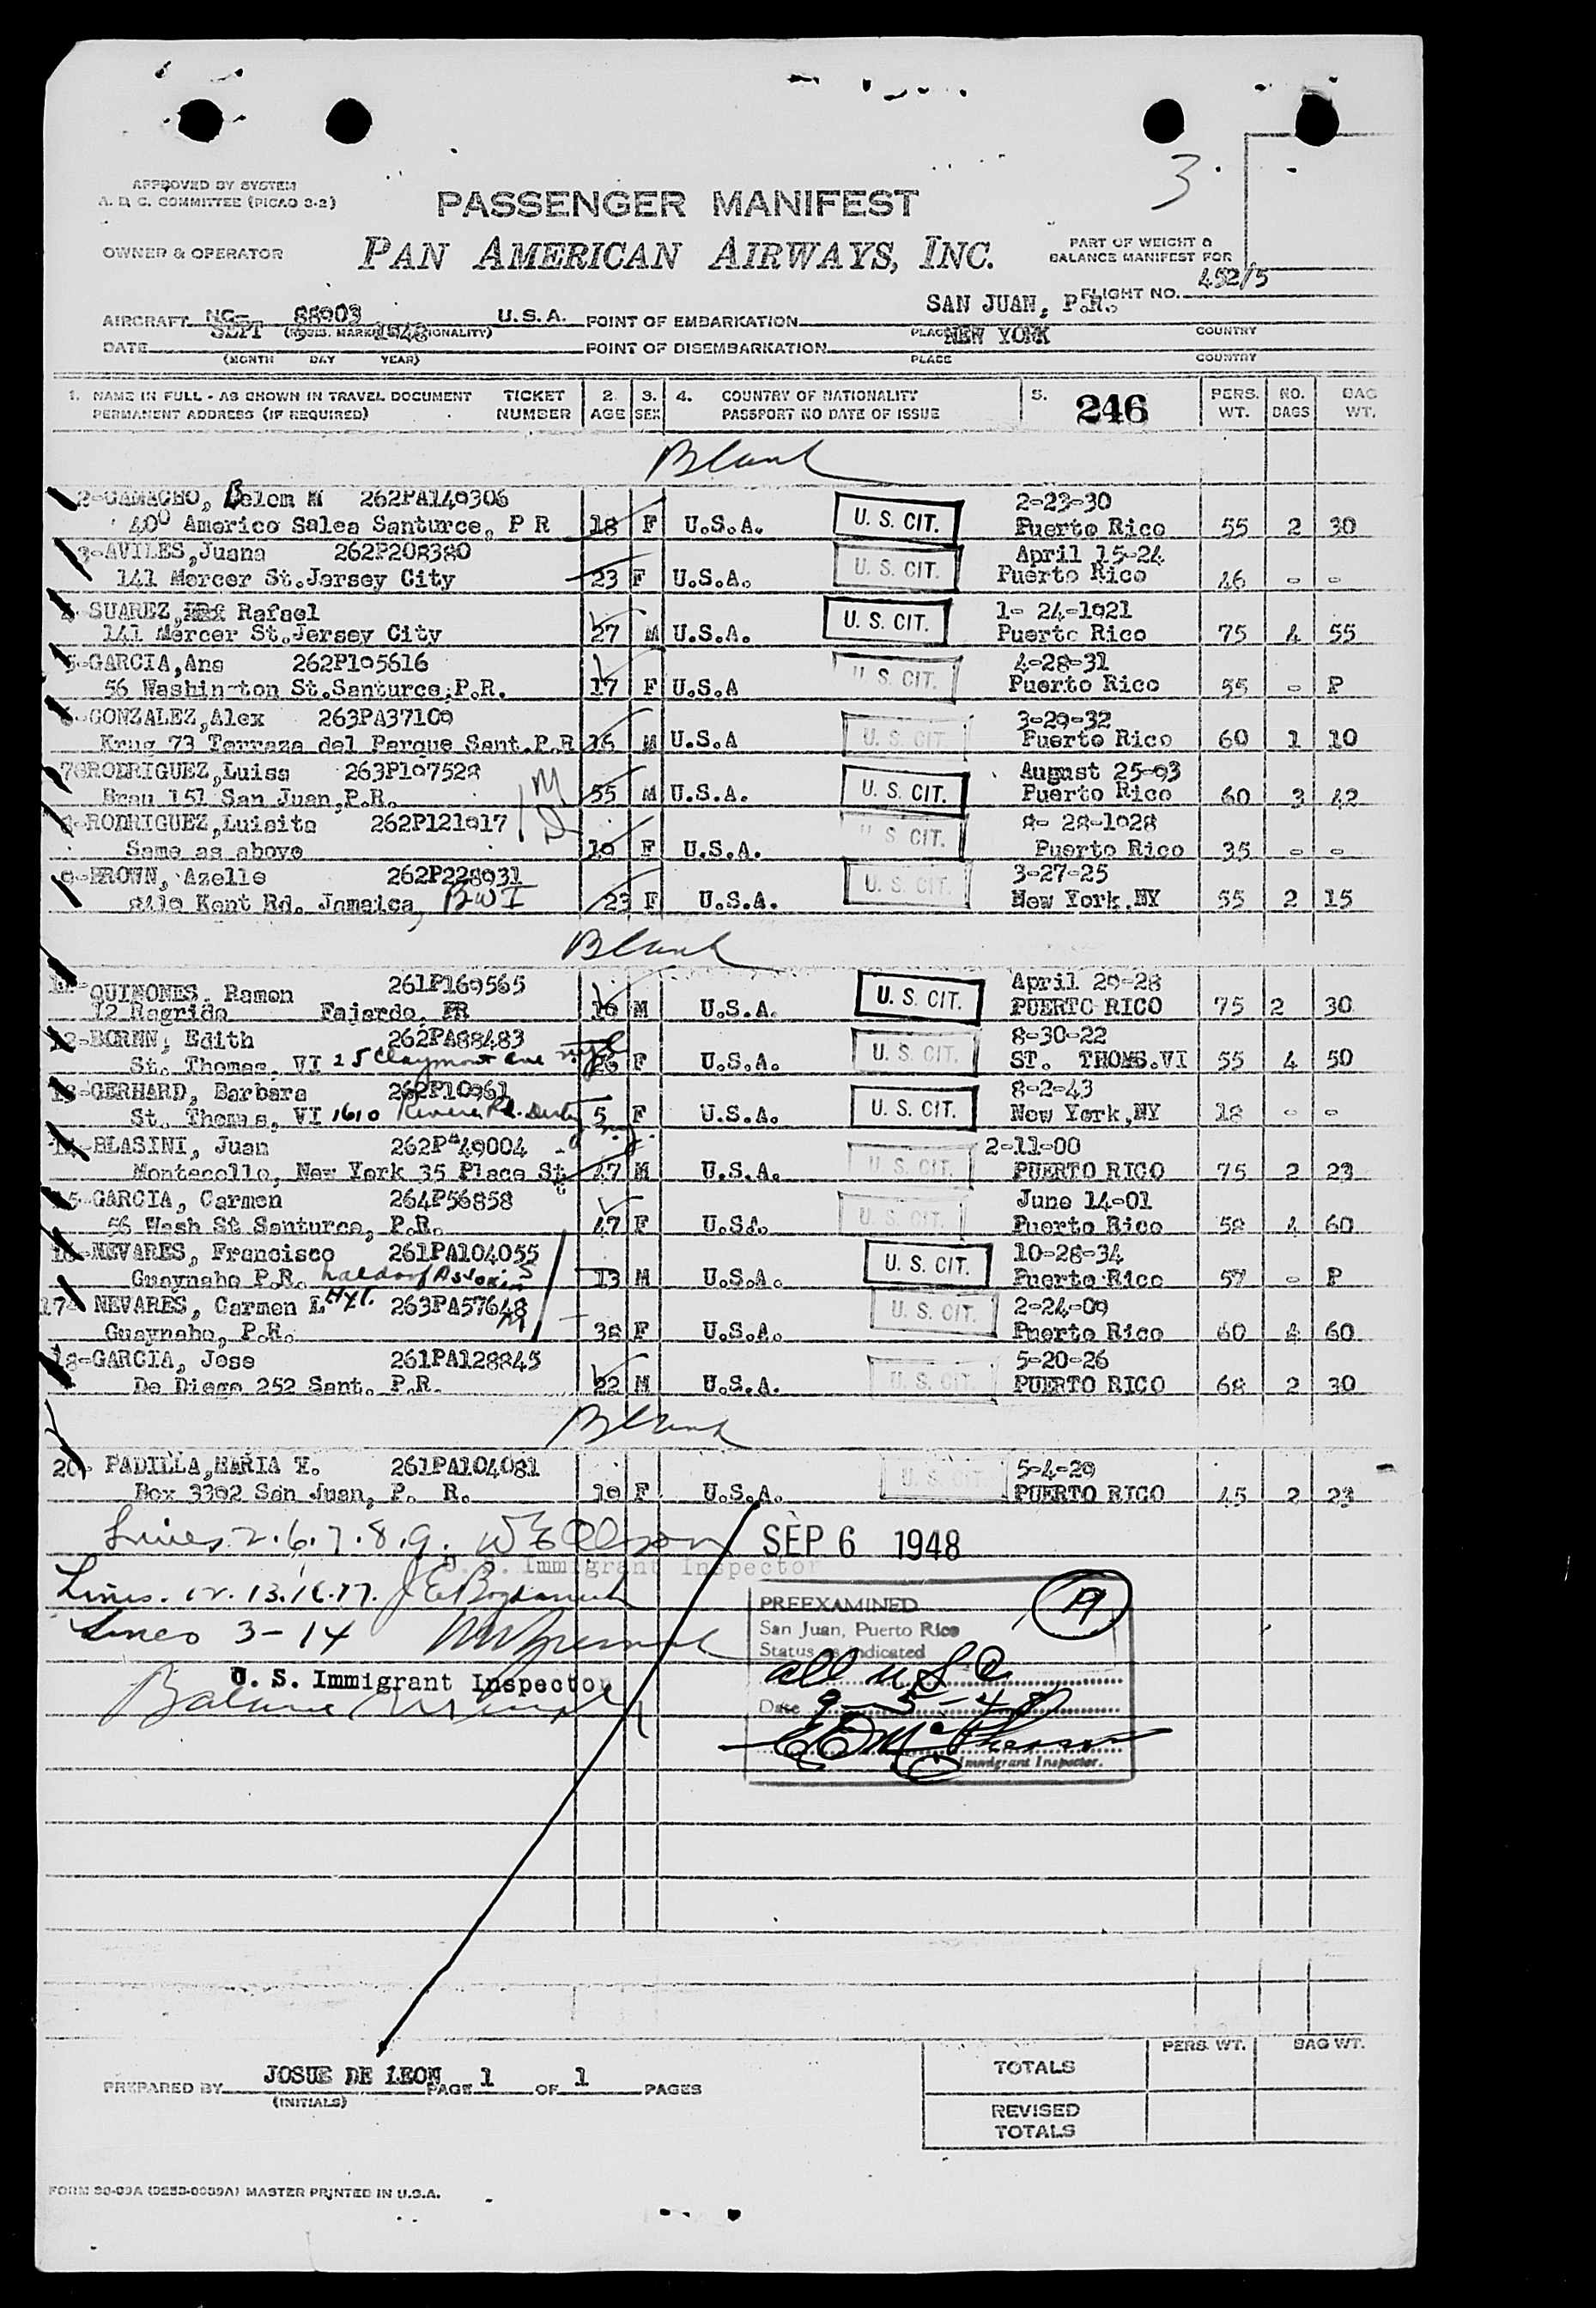 3
APPROVED BY SYSTEM
A. D. C. COMMITTEE (PICAO 3-2)
PASSENGER MANIFEST
OWNER & OPERATOR
PAN AMERICAN AIRWAYS, INC.
PART OF WEIGHT &
BALANCE MANIFEST FOR
FLIGHT NO. 452/5
AIRCRAFT NC- 88903 U.S.A. POINT OF EMBARKATION SAN JUAN, P.R.
PLACE COUNTRY
DATE SEPT 1948 POINT OF DISEMBARKATION NEW YORK
(MONTH DAY YEAR) PLACE COUNTRY
1. NAME IN FULL - AS SHOWN IN TRAVEL DOCUMENT TICKET 2. 3. 4. COUNTRY OF NATIONALITY 5. 246 PERS. NO. BAG
PERMANENT ADDRESS (IF REQUIRED) NUMBER AGE SEX PASSPORT NO DATE OF ISSUE WT. BAGS WT.
Blank
2-CAMACHO, Belem M 262PA149306 2-23-30
400 Americo Salas Santurce, P R 18 F U.S.A. U. S. CIT. Puerto Rico 55 2 30
3-AVILES,Juana 262P208380 April 15-24
141 Mercer St.Jersey City 23 F U.S.A. U. S. CIT. Puerto Rico 46 - -
SUAREZ, Rafael 1- 24-1921
141 Mercer St.Jersey City 27 M U.S.A. U. S. CIT. Puerto Rico 75 4 55
5-GARCIA,Ana 262P195616 4-28-31
56 Washington St.Santurce,P.R. 17 F U.S.A U. S. CIT. Puerto Rico 55 - P
GONZALEZ,Alex 263PA37109 3-29-32
Krug 73 Terraza del Parque Sant.P.R 16 M U.S.A U. S. CIT Puerto Rico 60 1 10
RODRIGUEZ,Luisa 263P197528 August 25-93
Brau 151 San Juan,P.R. 55 M U.S.A. U. S. CIT. Puerto Rico 60 3 42
RODRIGUEZ,Luisita 262P121917 8- 28-1928
Same as above 19 F U.S.A. U. S. CIT. Puerto Rico 35 - -
9-BROWN, Azelle 262P228931 3-27-25
Kent Rd. Jamaica, BWI 23 F U.S.A. U. S. CIT. New York,NY 55 2 15
Blank
QUINONES, Ramon 261P169565 April 29-28
12 Fajardo, PR 19 M U.S.A. U. S. CIT. PUERTO RICO 75 2 30
12-BORNN, Edith 262PA88483 8-30-22
St. Thomas, VI 25 Claymont Ave 26 F U.S.A. U. S. CIT. ST. THOMS.VI 55 4 50
13-GERHARD, Barbara 262P10961 8-2-43
St. Thomas, VI 1610 5 F U.S.A. U. S. CIT. New York,NY 18 - -
14-BLASINI, Juan 262P 49004 2-11-00
Montecello, New York 35 Place St 47 M U.S.A. U. S. CIT. PUERTO RICO 75 2 23
15-GARCIA, Carmen 264P56858 June 14-01
56 Wash St Santurce, P.R. 47 F U.SA. U. S. CIT. Puerto Rico 58 4 60
16-NEVARES, Francisco 261PA104055 10-28-34
Guaynabo P.R. Waldorf Astoria 13 M U.S.A. U. S. CIT. Puerto Rico 57 - P
17- NEVARES, Carmen L 263PA57648 2-24-09
Guaynabo, P.R. 38 F U.S.A. U. S. CIT. Puerto Rico 60 4 60
18-GARCIA, Jose 261PA128845 5-20-26
De Diego 252 Sant. P.R. 22 M U.S.A. U. S. CIT. PUERTO RICO 68 2 30
Blank
20- PADILLA,MARIA 261PA104081 5-4-29
Box 3392 San Juan, P. R. 19 F U.S.A. U. S. CIT PUERTO RICO 45 2 23
Lines 2.6.7.8.9. SEP 6 1948
U. S. Immigrant Inspector
Lines. 12.13.16.17.
Lines 3-14
U. S. Immigrant Inspector
Balance
PREEXAMINED 19
San Juan, Puerto Rico
Status as indicated
all U S C
Date 9-5-48
Immigrant Inspector.
PERS. WT. BAG WT.
TOTALS
REVISED
TOTALS
PREPARED BY JOSUE DE LEON PAGE 1 OF 1 PAGES
(INITIALS)
MASTER PRINTED IN U.S.A.